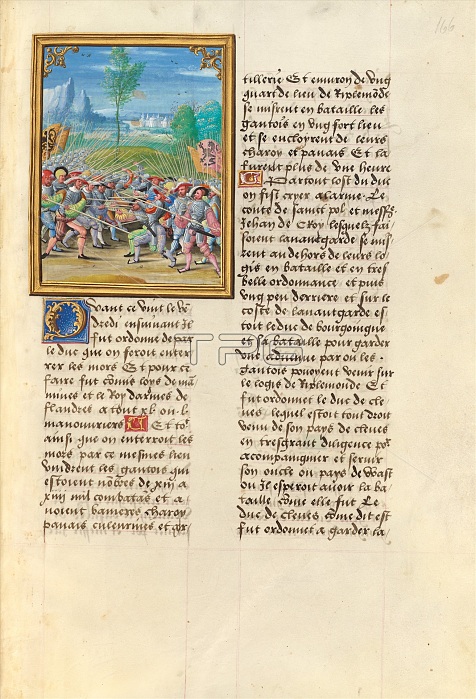 166
Quant ce vint le vē
dredi ensuiuant Jl
fut ordonne de par
le duc que on feroit enter
rer les mors Et pour ce
faire fut cōmis loys de ma
mines et le Roy darmes de
flandres a tout xl ou l
manouuriers Et toꝰ
ainsi que on enterroit les
mors par ce mesmes lieu
vindrent les gantois qui
estoient nōbres de xiij a
xiiij mil combatās et a
uoient banieres charoy
pauais culeurines et ar
tillerie Et enuiron de vng
quart de lieu de Riplemōde
se misrent en bataille les
gantois en vng fort lieu
et se encloyrent de leurs
charoy et pauais Et la
furent plus de vne heure
Partout lost du duc
on fist cryer alarme Le
conte de sainct pol et messrͤ
Jehan de Croy lesquelz fai
soient lauantgarde se mis
rent au dehors de leurs lo
gis en bataille et en tres
belle ordonnance et puis
vng peu derriere et sur le
coste de lauantgarde es
toit le duc de bourgoingne
et sa bataille pour garder
vne aduenue par ou les
gantois pouoyent venir sur
le logis de Riplemonde Et
fut ordonnet le duc de cle
ues lequel estoit tout droit
venu de son pays de cleues
en tresgrant diligence poʳ
accompaignier et seruir
son oncle ou pays de wast
ou Jl esperoit auoir la ba
taille cōme elle fut Le
duc de cleues cōme dit est
fut ordonnet a garder la
TPG